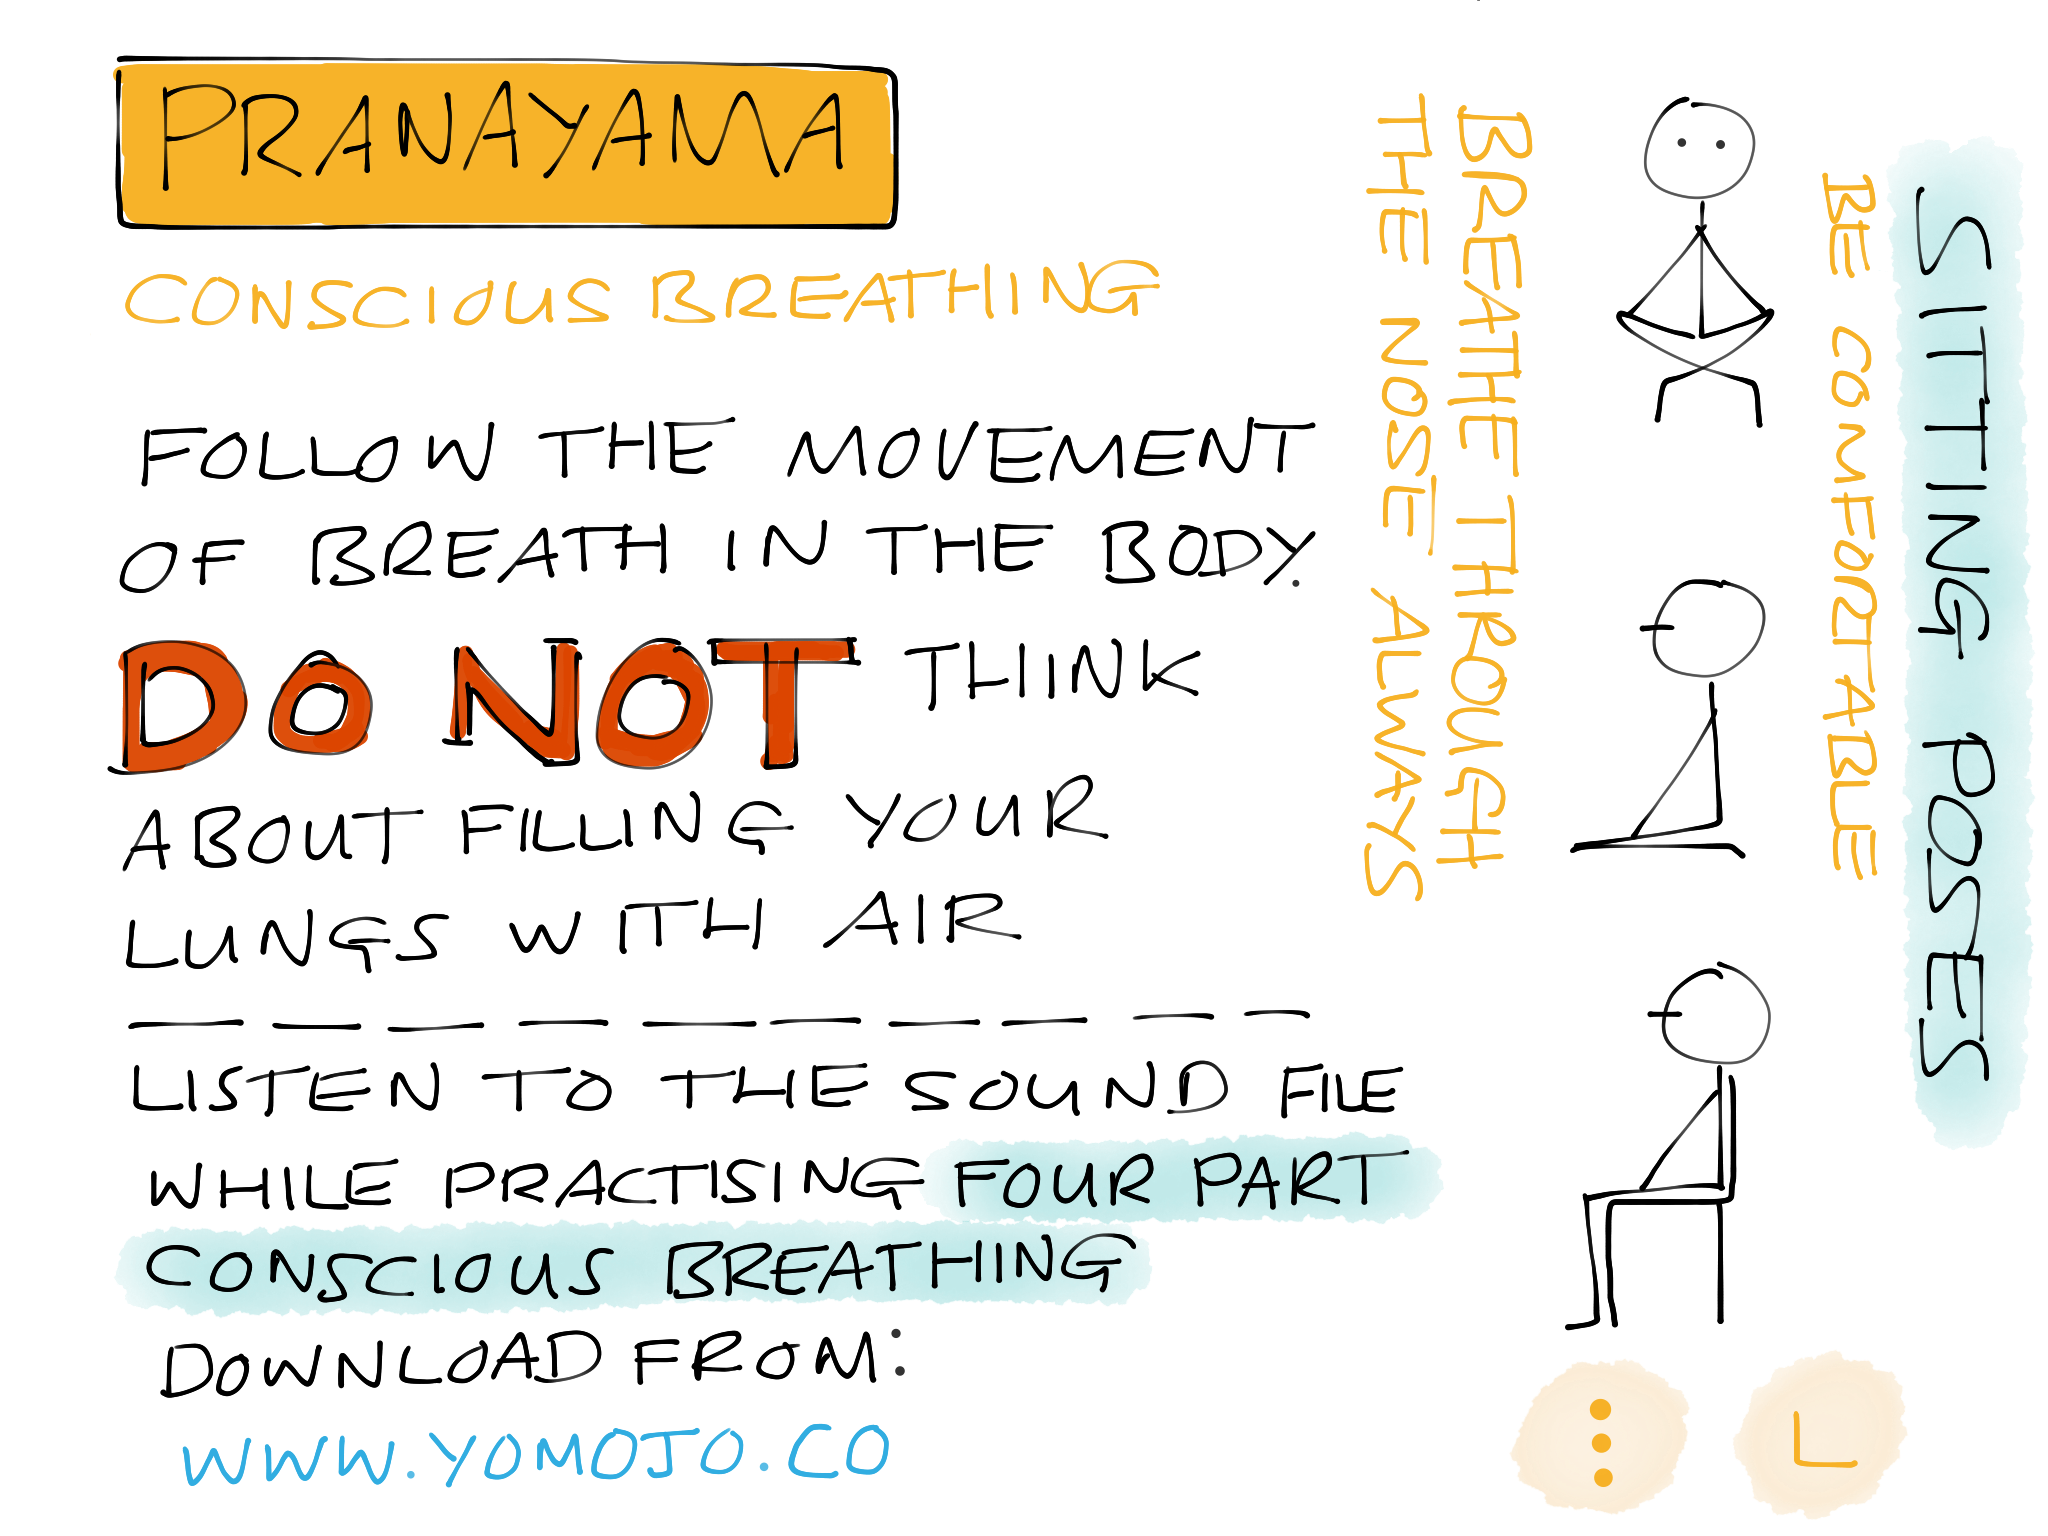 PRANAYAMA
CONSCIOUS BREATHING
FOLLOW THE MOVEMENT
OF BREATH IN THE BODY.
DO NOT THINK
ABOUT FILLING YOUR
LUNGS WITH AIR
LISTEN TO THE SOUND FILE
WHILE PRACTISING FOUR PART
CONSCIOUS BREATHING
DOWNLOAD FROM:
WWW.YOMOJO.CO
BREATHE THROUGH
THE NOSE ALWAYS
SITTING POSES
BE COMFORTABLE
L